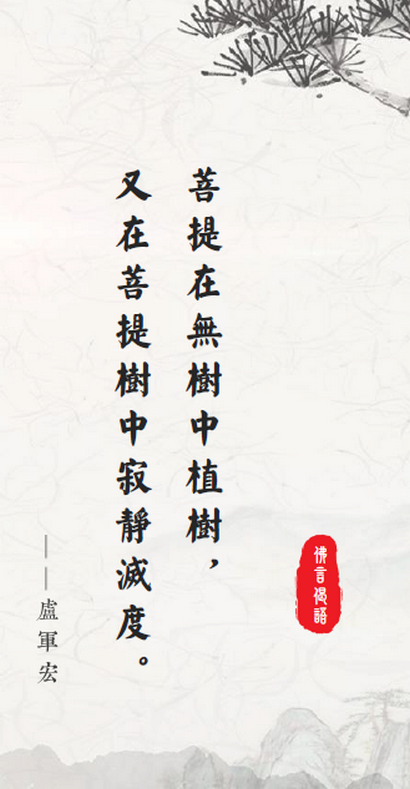 佛言偈語
菩提在無樹中植樹，
又在菩提樹中寂靜滅度。
——盧軍宏